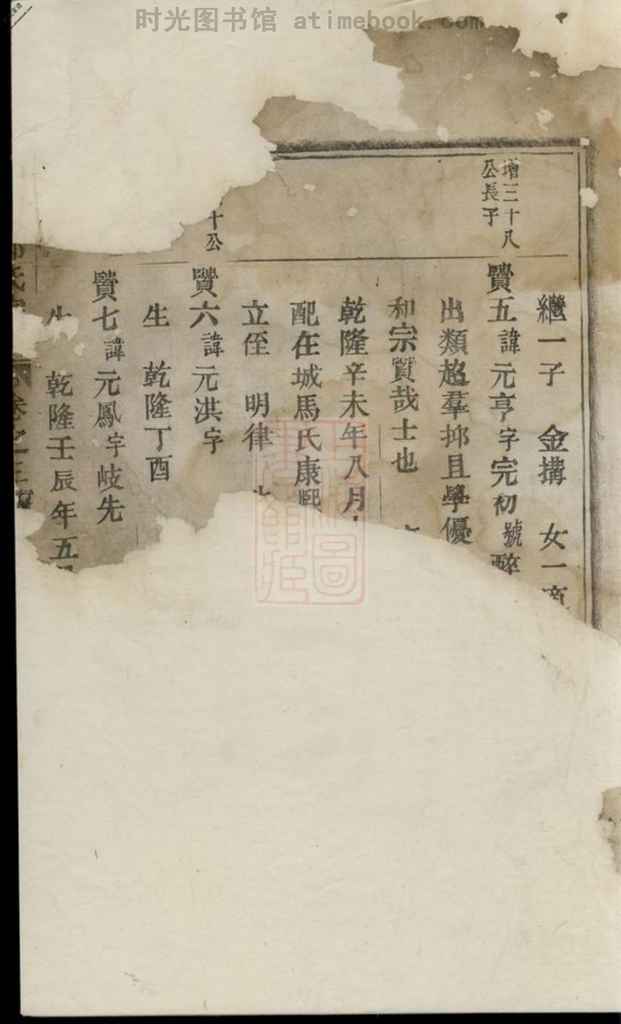 时光图书馆 atimebook.com
繼一子 金搆 女一適
增三十八
公長子
贒五諱元亨字完初號醉
出類超羣抑且學優
和宗賢哉士也
乾隆辛未年八月
配在城馬氏康熙
立侄 明律
十公
贒六諱元淇字
生 乾隆丁酉
贒七諱元鳳字岐先
生 乾隆壬辰年五
氏
卷之三